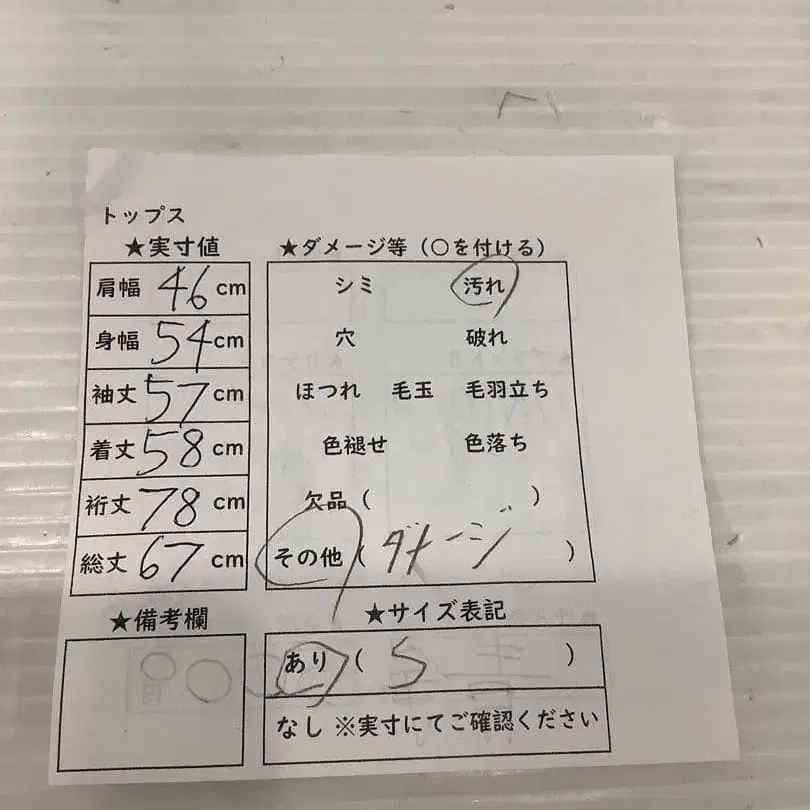 トップス
★実寸値
肩幅 46 cm
身幅 54 cm
袖丈 57 cm
着丈 58 cm
裄丈 78 cm
総丈 67 cm
★備考欄
★ダメージ等（○を付ける）
シミ 汚れ
穴 破れ
ほつれ 毛玉 毛羽立ち
色褪せ 色落ち
欠品（ ）
その他（ダメージ）
★サイズ表記
あり（S）
なし ※実寸にてご確認ください